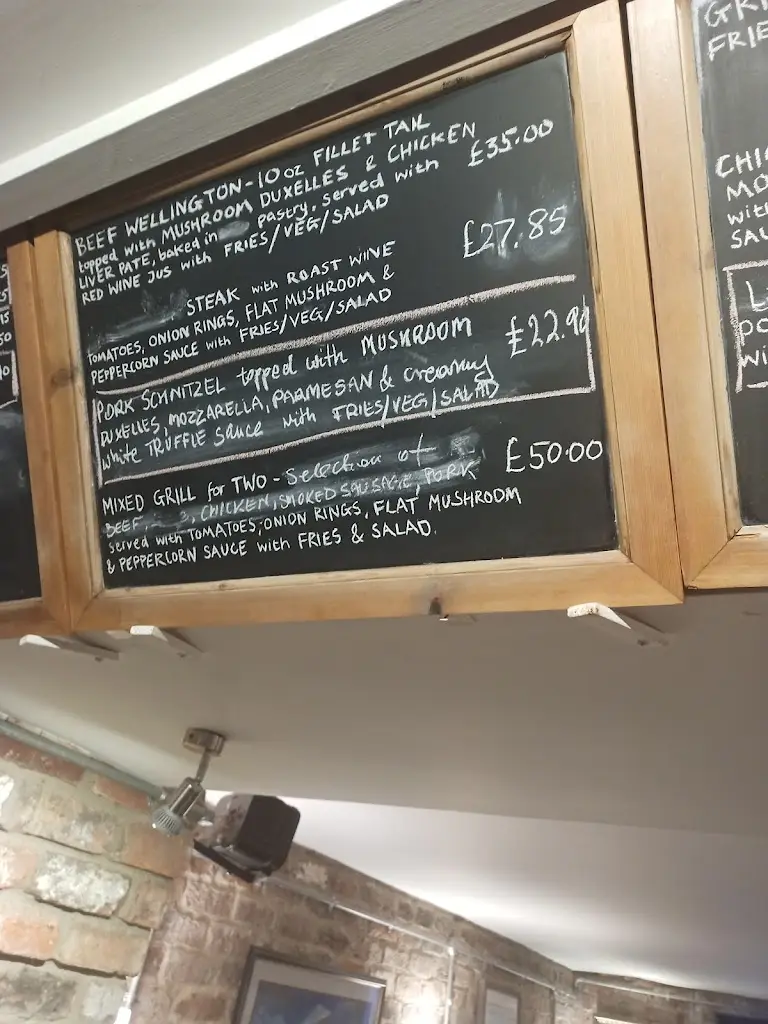 BEEF WELLINGTON-10oz FILLET TAIL
topped with MUSHROOM DUXELLES & CHICKEN
LIVER PATE, baked in pastry. served with
RED WINE JUS with FRIES/VEG/SALAD
£35.00
STEAK with ROAST WINE
TOMATOES, ONION RINGS, FLAT MUSHROOM &
PEPPERCORN SAUCE with FRIES/VEG/SALAD
£27.85
PORK SCHNITZEL topped with MUSHROOM
DUXELLES, MOZZARELLA, PARMESAN & creamy
white TRUFFLE sauce with FRIES/VEG/SALAD
MIXED GRILL for TWO - Selection of
BEEF, CHICKEN, SMOKED SAUSAGE, PORK
served with TOMATOES, ONION RINGS, FLAT MUSHROOM
& PEPPERCORN SAUCE with FRIES & SALAD.
£50.00